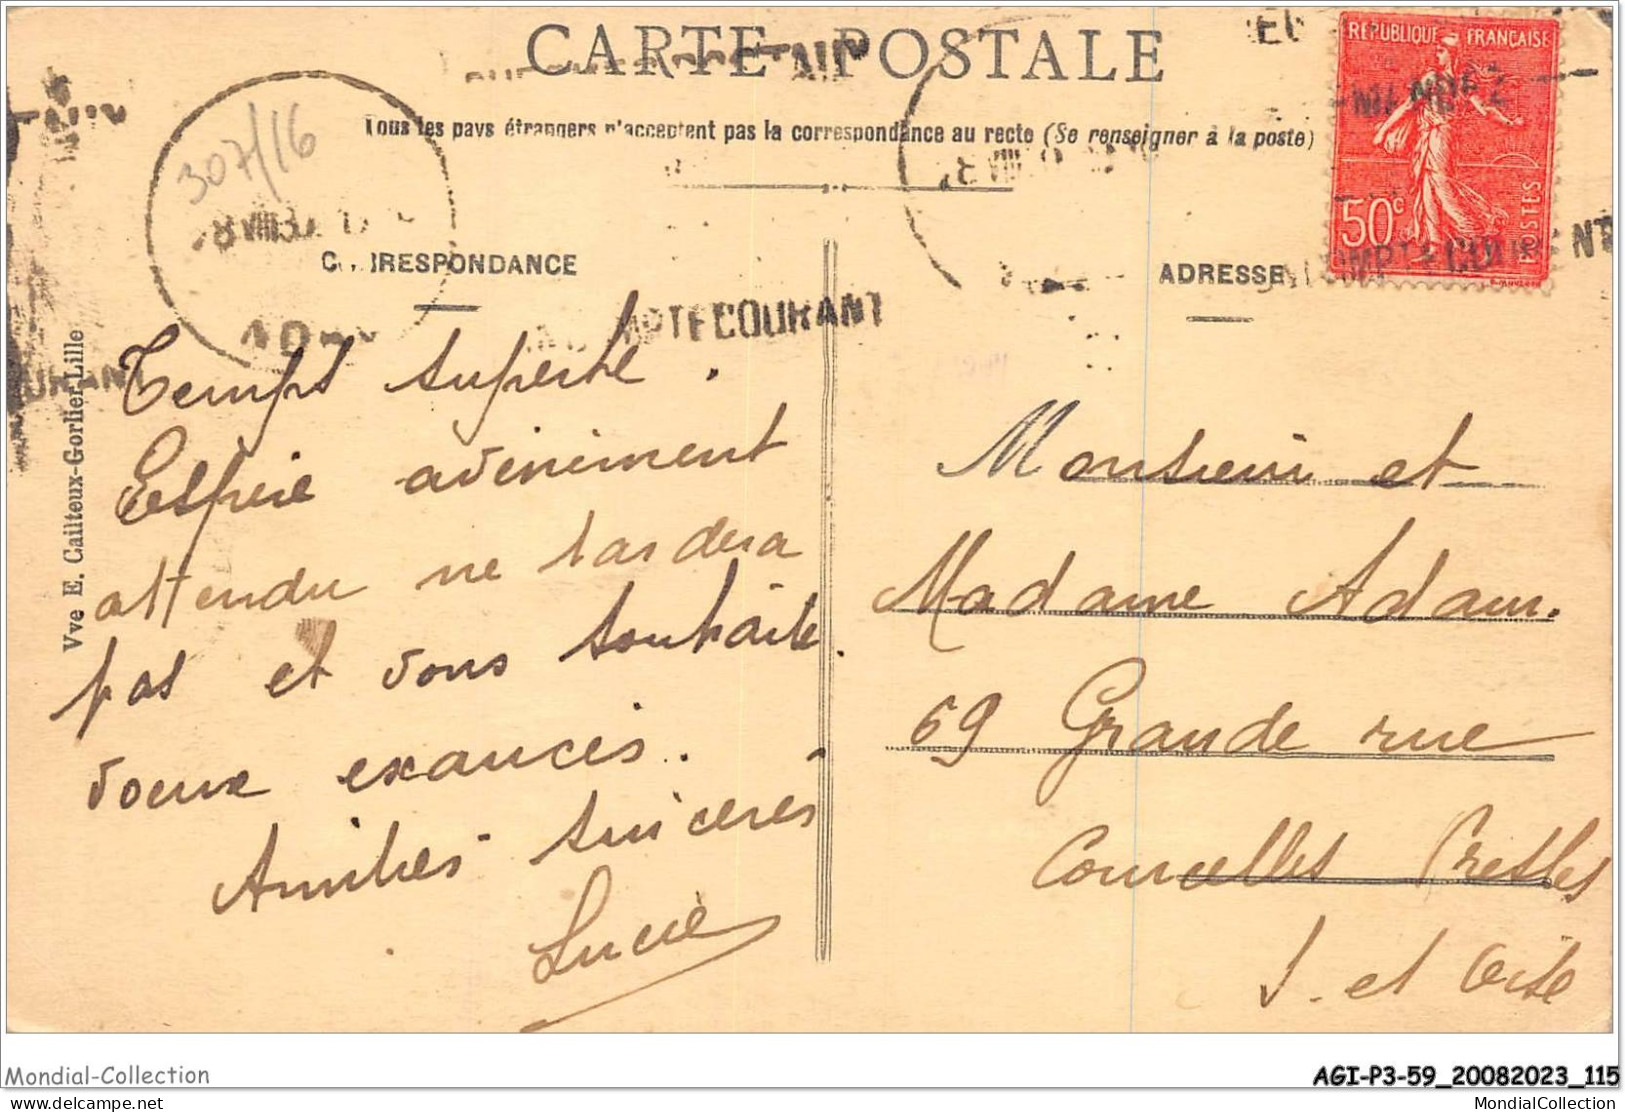 CARTE POSTALE
Tous les pays étrangers n'acceptent pas la correspondance au recto (Se renseigner à la poste)
RÉPUBLIQUE FRANÇAISE
50c
POSTES
307/16
CORRESPONDANCE
ADRESSE
COURANT
Vve E. Cailteux-Gorlier Lille
Temps superbe.
Espère avènement
attendu ne tardera
pas et vous souhaite
voeux exaucés.
Amitiés sincères
Lucie
Monsieur et
Madame Adam.
69 Grande rue
Courcelles Presles
S. et Oise
Mondial-Collection
AGI-P3-59_20082023_115
delcampe.net
MondialCollection